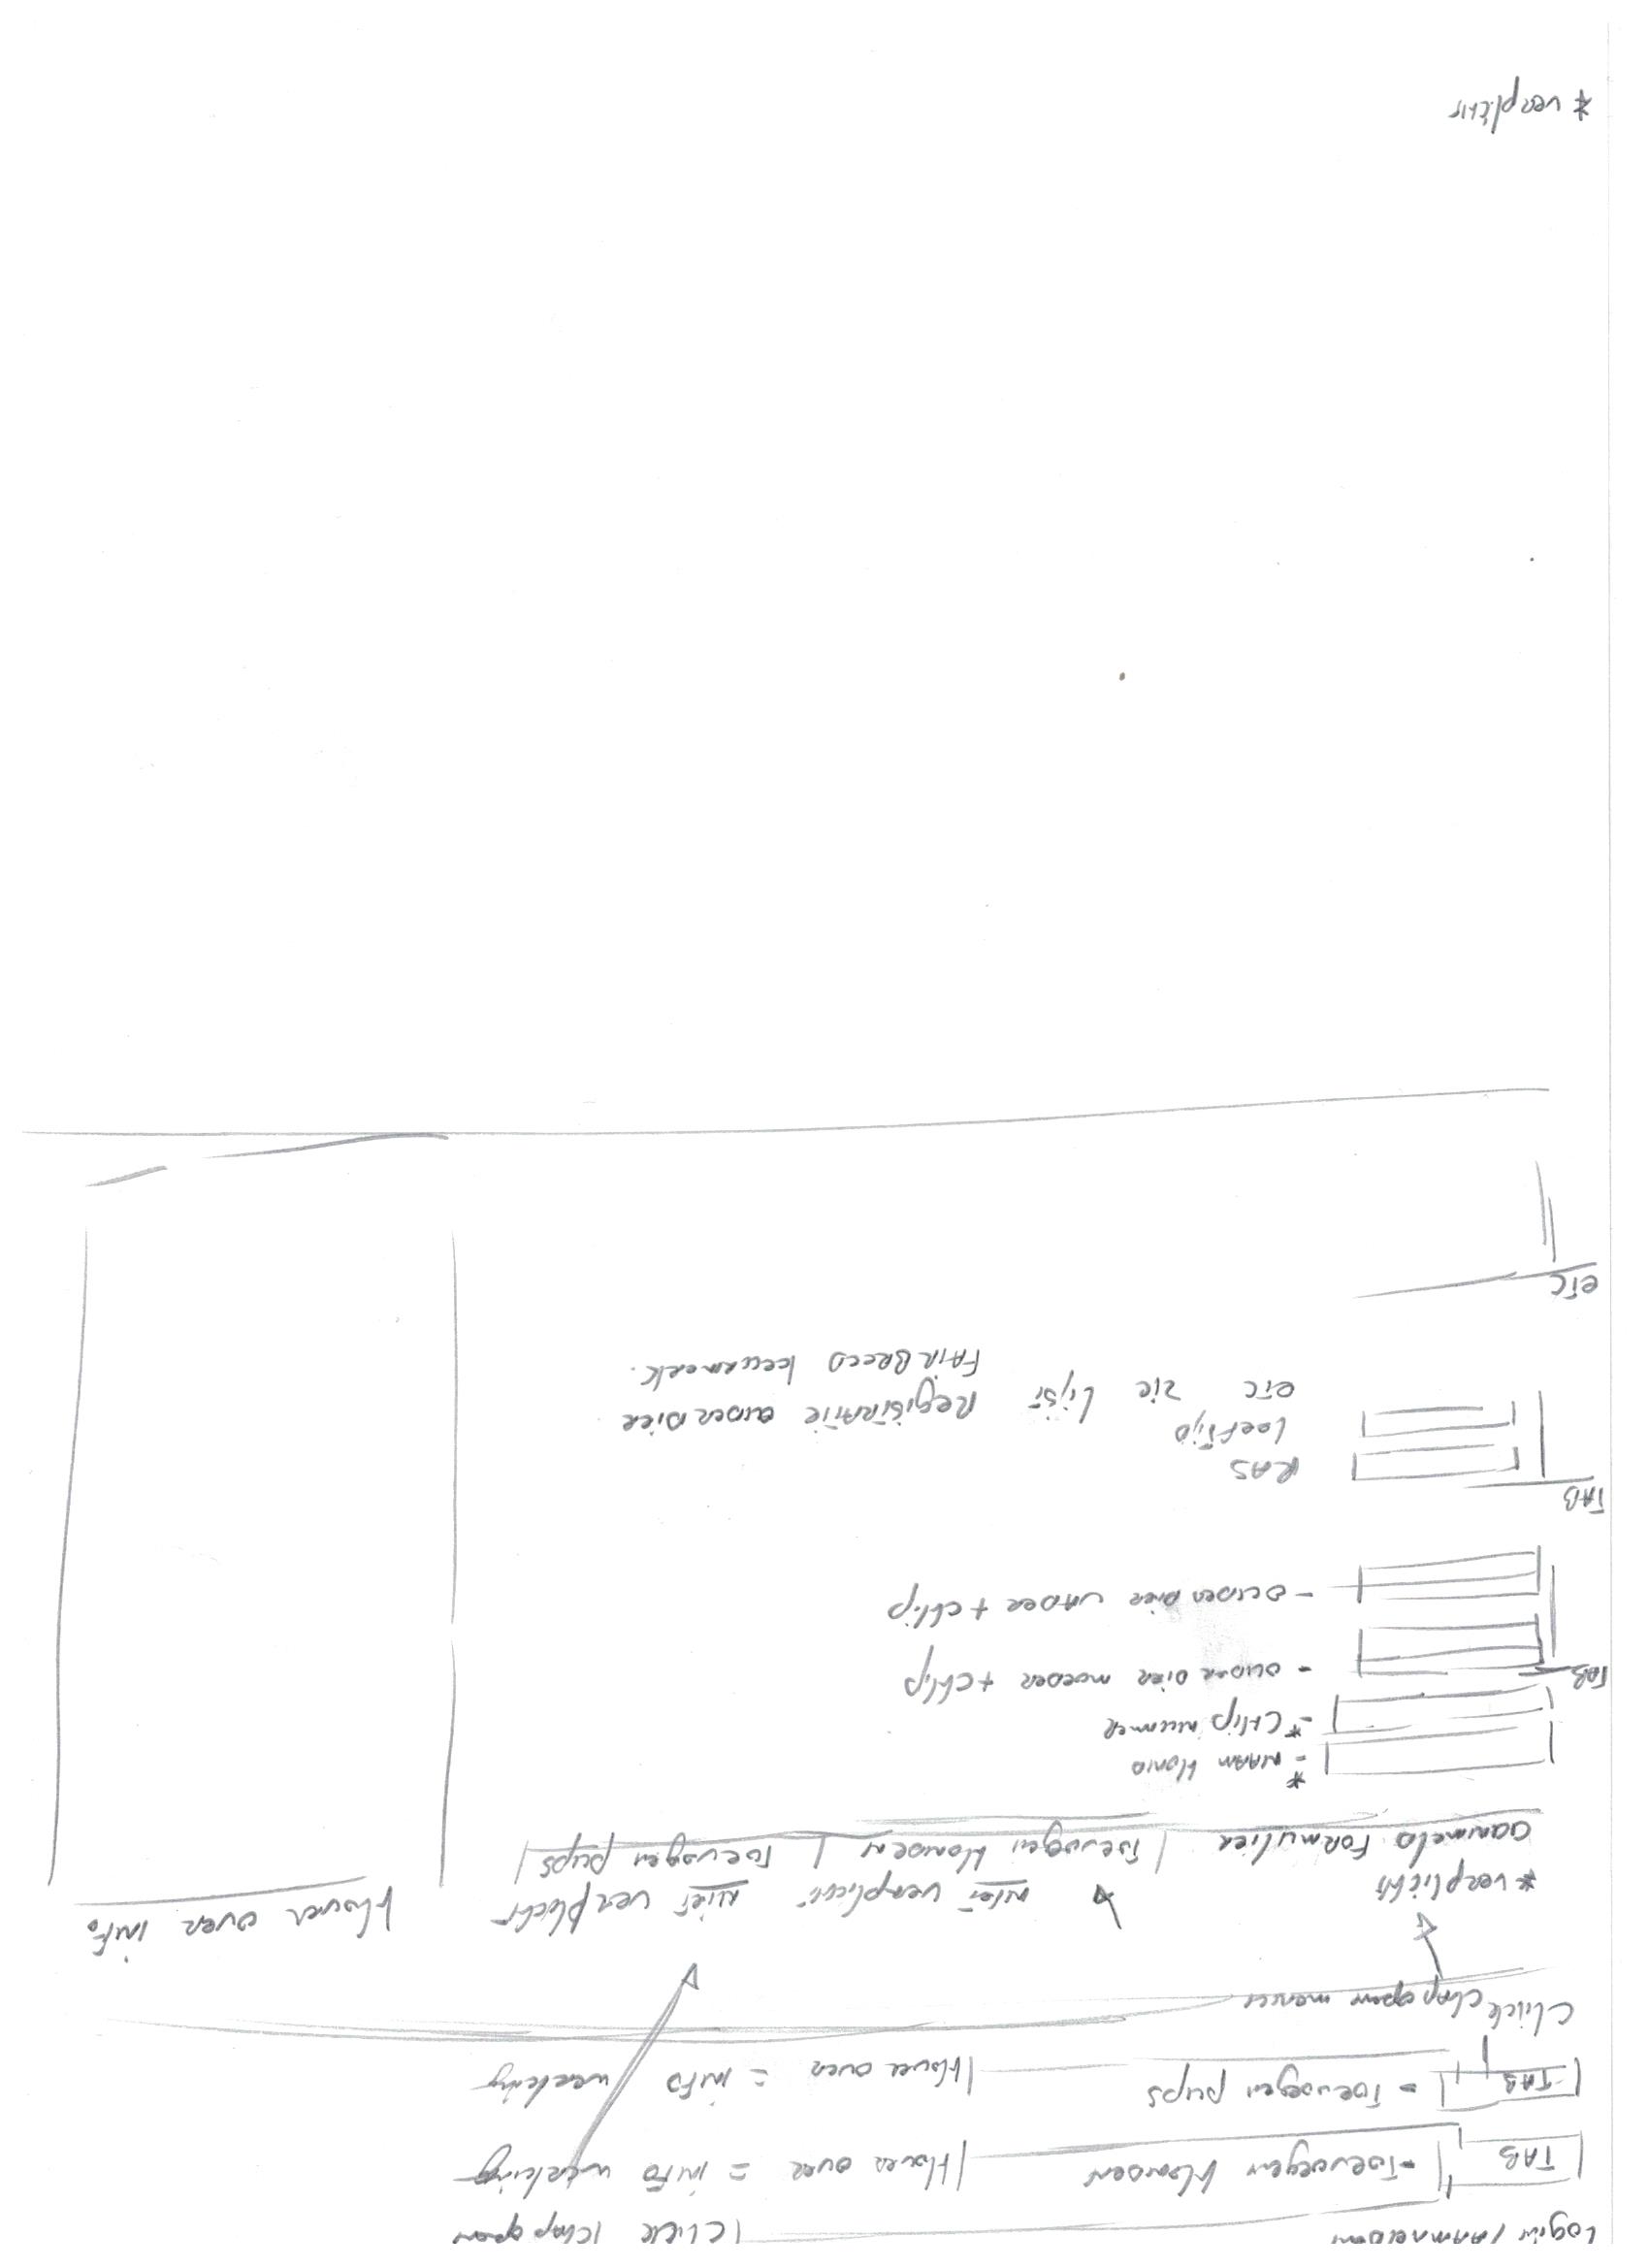 Login / Aanmelden | Click | Clap open
| TAB | - Toevoegen Honden | Hover over = info werking
| TAB | - Toevoegen pups | Hover over = info werking
Click Clap open menu
Hover over info
* verplicht niet verplicht niet verplicht
aanmeld Formulier | Toevoegen Honden | Toevoegen pups |
* - NAAM Hond
* - Chip nummer
TAB
- ouder dier moeder + chip
- ouder dier vader + chip
TAB
RAS
Leeftijd
etc zie Lijst Registratie ouder dier
FAIR Breed keurmerk.
etc
* verplicht